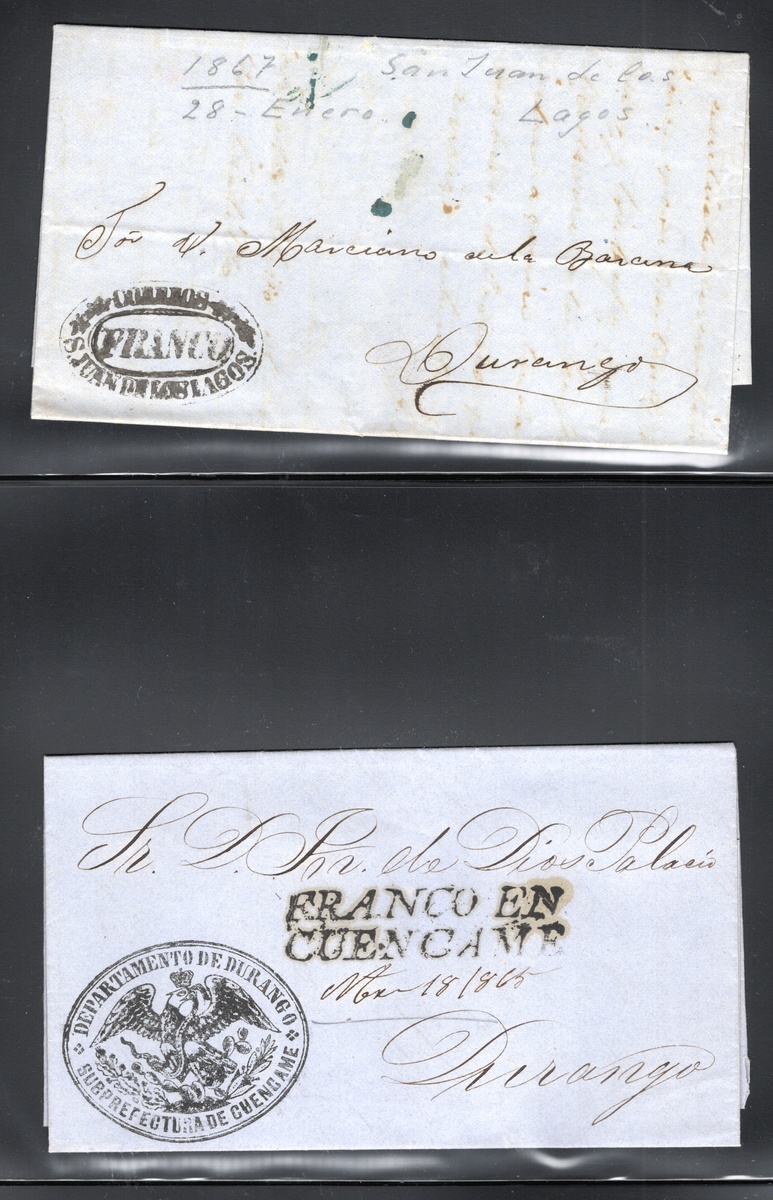 1867 San Juan de los
28 - Enero. Lagos.
Sor D. Marciano de la Barcena
CORREOS
FRANCO
S. JUAN DE LOS LAGOS.
Durango
Sr. D. Jn. de Dios Palacio
FRANCO EN
CUENCAME
18/865
Durango
DEPARTAMENTO DE DURANGO
SUBPREFECTURA DE CUENCAME